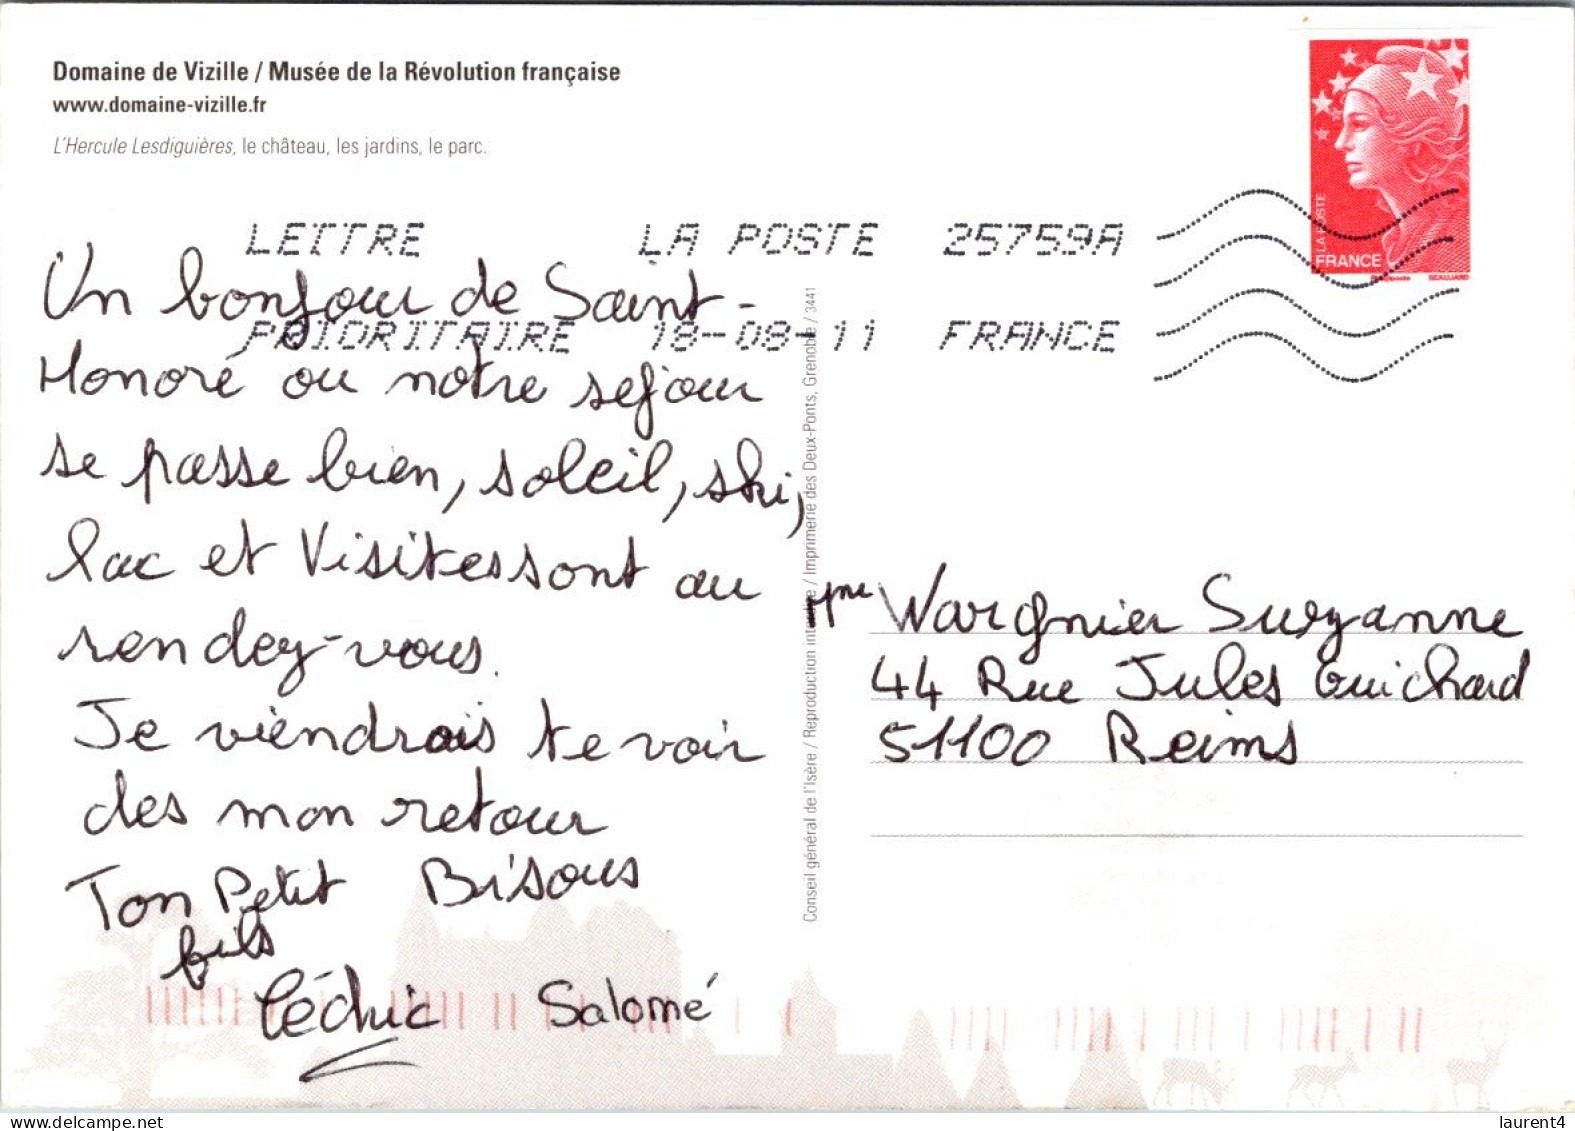 Domaine de Vizille / Musée de la Révolution française
www.domaine-vizille.fr
L'Hercule Lesdiguières, le château, les jardins, le parc.
LETTRE LA POSTE 25759A
PRIORITAIRE 18-08-11 FRANCE
LA POSTE
FRANCE
Un bonjour de Saint-
Honoré ou notre sejour
se passe bien, soleil, ski,
lac et Visites sont au
rendez-vous.
Je viendrais te voir
des mon retour
Ton Petit Bisous
fils
Cédric Salomé
Conseil général de l'Isère / Reproduction interdite / Imprimerie des Deux-Ponts, Grenoble / 3441
Mme Wargnier Suzanne
44 Rue Jules Guichard
51100 Reims
laurent4